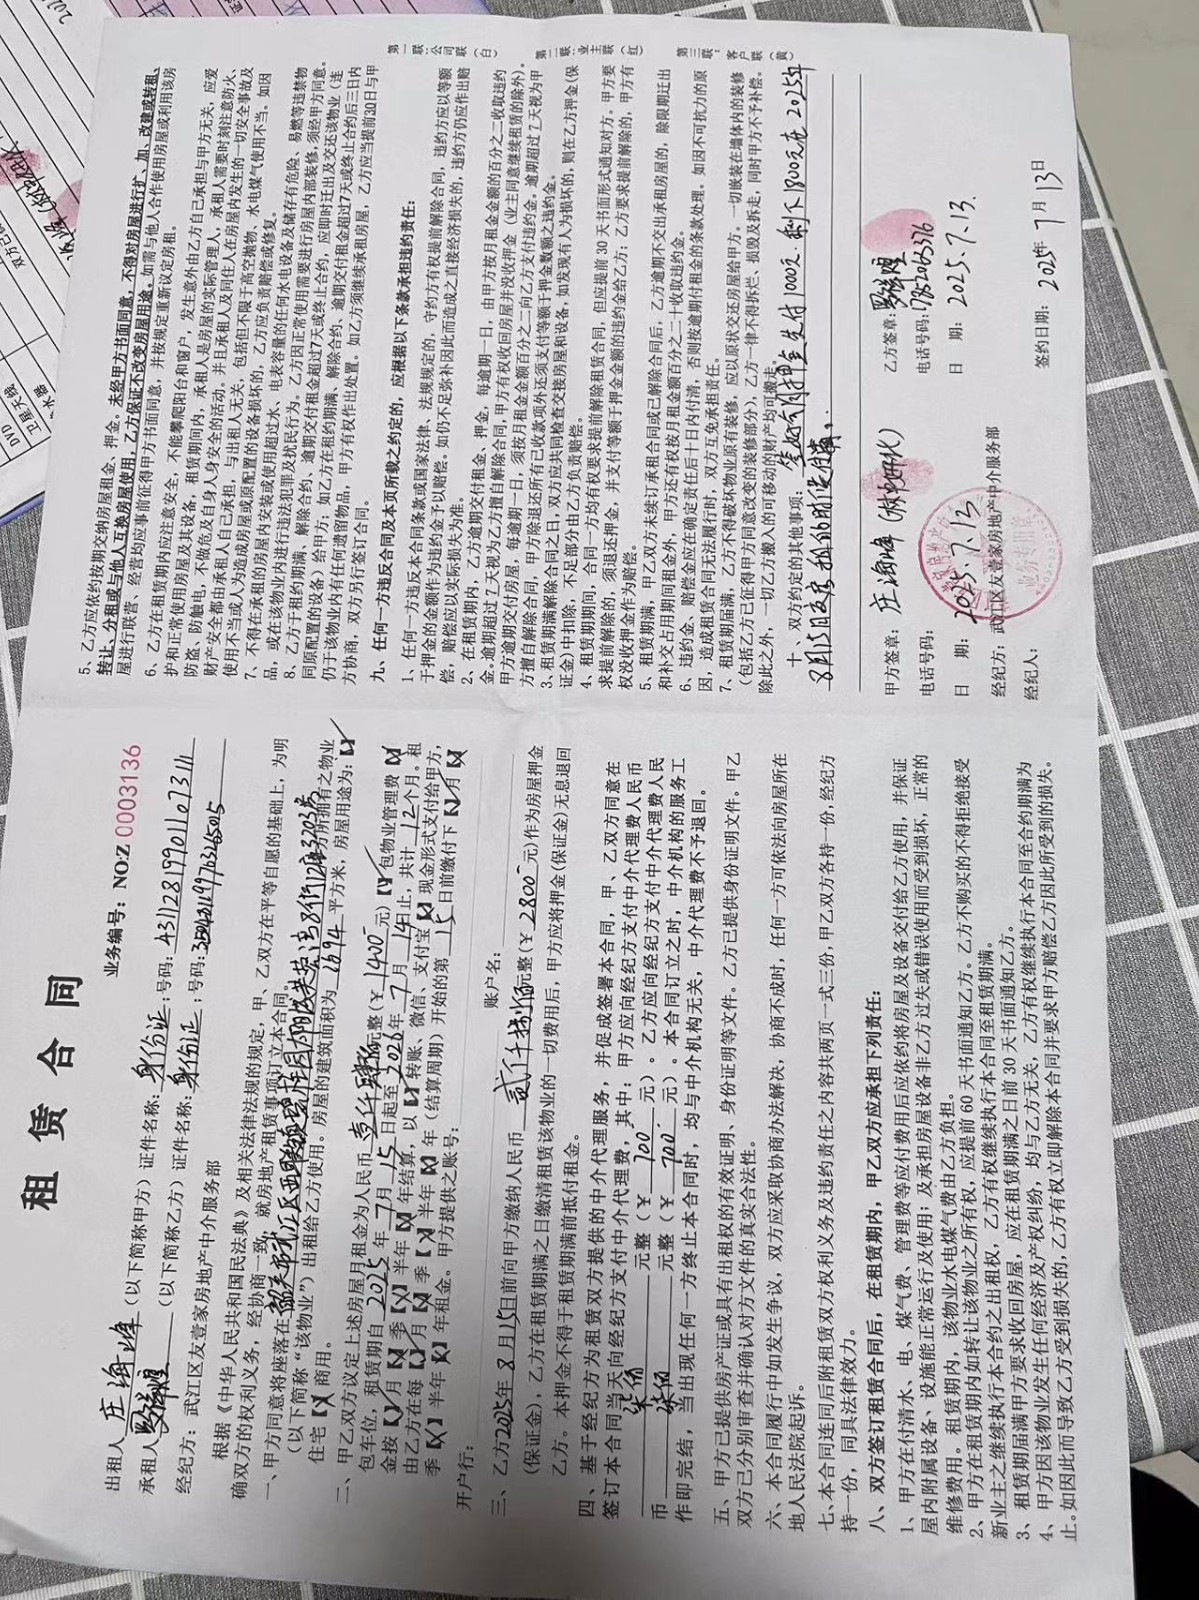 租 赁 合 同
业务编号：NO:Z 0003136
出租人 庄海峰 （以下简称甲方）证件名称：身份证 ：号码：431128199011073111
承租人 （以下简称乙方）证件名称：身份证 ：号码：
经纪方：武江区友壹家房地产中介服务部
根据《中华人民共和国民法典》及相关法律法规的规定，甲、乙双方在平等自愿的基础上，为明
确双方的权利义务，经协商一致，就房地产租赁事项订立本合同。
一、甲方同意将座落在 方所拥有之物业
（以下简称“该物业”）出租给乙方使用。房屋的建筑面积为 平方米，房屋用途为：【√】
住宅【×】商用。
二、甲乙双方议定上述房屋月租金为人民币 元整（￥1400元）【√】包物业管理费【×】
包车位，租赁期自 2025 年 7 月 15 日起至 2026 年 7 月 14 日止，共计 12 个月。租
金按【√】月【×】季【×】半年【×】年结算，以【√】转账、微信、支付宝【×】现金形式支付给甲方，
由乙方在每【√】月【×】季【×】半年【×】年（结算周期）开始的第 15 日前缴付下【√】月【×】
季【×】半年【×】年租金。甲方提供之账号：
开户行： 账户名：
三、乙方2025年8月15日前向甲方缴纳人民币 贰仟捌佰元整（￥2800元）作为房屋押金
（保证金），乙方在租赁期满之日缴清租赁该物业的一切费用后，甲方应将押金（保证金）无息退回
乙方。本押金不得于租赁期满前抵付租金。
四、基于经纪方为租赁双方提供的中介代理服务，并促成签署本合同，甲、乙双方同意在
签订本合同当天向经纪方支付中介代理费，其中：甲方应向经纪方支付中介代理费人民币
柒佰 元整（￥ 700 元）。乙方应向经纪方支付中介代理费人民
币 柒佰 元整（￥ 700 元）。本合同订立之时，中介机构的服务工
作即完结，当出现任何一方终止本合同时，均与中介机构无关，中介代理费不予退回。
五、甲方已提供房产证或具有出租权的有效证明、身份证明等文件。乙方已提供身份证明文件。甲乙
双方已分别审查并确认对方文件的真实合法性。
六、本合同履行中如发生争议，双方应采取协商办法解决，协商不成时，任何一方可依法向房屋所在
地人民法院起诉。
七、本合同连同后附租赁双方权利义务及违约责任之内容共两页一式三份，甲乙双方各持一份，经纪方
持一份，同具法律效力。
八、双方签订租赁合同后，在租赁期内，甲乙双方应承担下列责任：
1、甲方在付清水、电、煤气费、管理费等应付费用后应依约将房屋及设备交付给乙方使用，并保证
屋内附属设备、设施能正常运行及使用；及承担房屋设备非乙方过失或错误使用而受到损坏，正常的
维修费用。租赁期内，该物业水电煤气费由乙方负担。
2、甲方在租赁期内如转让该物业之所有权，应提前 60 天书面通知乙方。乙方不购买的不得拒绝接受
新业主之继续执行本合约之出租权，乙方有权继续执行本合同至租赁期满。
3、租赁期届满甲方要求收回房屋，应在租赁期满之日前 30 天书面通知乙方。
4、甲方因该物业发生任何经济及产权纠纷，均与乙方无关，乙方有权继续执行本合同至合约期满为
止。如因此而导致乙方受到损失的，乙方有权立即解除本合同并要求甲方赔偿乙方因此所受到的损失。
5、乙方应依约按期交纳房屋租金、押金。未经甲方书面同意，不得对房屋进行扩、加、改建或转租、
转让、分租或与他人互换房屋使用，乙方保证不改变房屋用途。如需与他人合作使用房屋或利用该房
屋进行联营、经营均应事前征得甲方书面同意，并按规定重新议定房租。
6、乙方在租赁期内应注意安全，不能攀爬阳台和窗户，发生意外由乙方自己承担与甲方无关，应爱
护和正常使用房屋及其设备，租赁期间内，承租人是房屋的实际管理人，承租人需要时刻注意防火、
防盗、防触电，不做危及自身人身安全的活动。并且承租人及同住人在房屋内发生的一切安全事故及
财产安全都由承租人自己承担，与出租人无关，包括但不限于高空抛物、水电煤气使用不当。如因
使用不当或人为造成房屋或原配置的设备损坏的，乙方应负责赔偿或修复。
7、不得在承租的房屋内安装或使用超过水、电表容量的任何水电设备及储存有危险、易燃等违禁物
品，或在该物业内进行违法犯罪及扰民行为。乙方因正常使用需要进行房屋内部装修，须经甲方同意。
8、乙方于租约期满、解除合约、逾期交付租金超过7天或终止合约，应即时迁出及交还该物业（连
同原配置的设备）给甲方；如乙方在租约期满、解除合约、逾期交付租金超过7天或终止合约后三日内
仍于该物业内有任何遗留物品，甲方有权作出处置。如乙方须继续承租房屋，乙方应当提前30日与甲
方协商，双方另行签订合同。
九、任何一方违反合同及本页所载之约定的，应根据以下条款承担违约责任：
1、任何一方违反本合同条款或国家法律、法规规定的，守约方有权提前解除合同，违约方应以等额
于押金的金额作为违约金予以赔偿。如仍不足弥补因此而造成之直接经济损失的，违约方仍应作出赔
偿，赔偿应以实际损失为准。
2、在租赁期内，乙方逾期交付租金、押金，每逾期一日，由甲方按月租金金额的百分之二收取违约
金。逾期超过7天视为乙方擅自解除合同，甲方有权收回房屋并没收押金（业主同意继续租赁的除外）。
甲方逾期交付房屋，每逾期一日，须按月租金金额百分之二向乙方支付违约金。逾期超过7天视为甲
方擅自解除合同，甲方除退还所有已收款项外还须支付等额于押金数额之违约金。
3、租赁期满解除合同之日，双方应共同检查交接房屋和设备，如发现有人为损坏的，则在乙方押金（保
证金）中扣除，不足部分由乙方负责赔偿。
4、租赁期期间，合同一方均有权要求提前解除租赁合同，但应提前 30 天书面形式通知对方。甲方要
求提前解除的，须退还押金，并支付等额于押金金额的违约金给乙方；乙方要求提前解除的，甲方有
权没收押金作为赔偿。
5、租赁期满，甲乙双方未续订承租合同或已解除合同后，乙方逾期不交出承租房屋的，除限期迁出
和补交占用期间租金外，甲方还有权按月租金额百分之二十收取违约金。
6、违约金、赔偿金应在确定责任后十日内付清，否则按逾期付租金的条款处理。如因不可抗力的原
因，造成租赁合同无法履行时，双方互免承担责任。
7、租赁期届满，乙方不得破坏物业原有装修，应以原状交还房屋给甲方。一切嵌装在墙体内的装修
（包括乙方已征得甲方同意改变的装修部分），乙方一律不得拆烂、损毁及拆走，同时甲方不予补偿。
除此之外，一切乙方搬入的可移动的财产均可搬走。
十、双方约定的其他事项：签好合同押金先付1000元 剩下1800元在2025年
8月15日
甲方签章：庄海峰
电话号码：
日 期：2025.7.13
经纪方：武江区友壹家房地产中介服务部
经纪人：
乙方签章：
电话号码：
日 期：2025.7.13.
签约日期：2025年7月13日
第一联：公司联（白）
第二联：业主联（红）
第三联：客户联（黄）
业务专用章
DVD
卫星天线